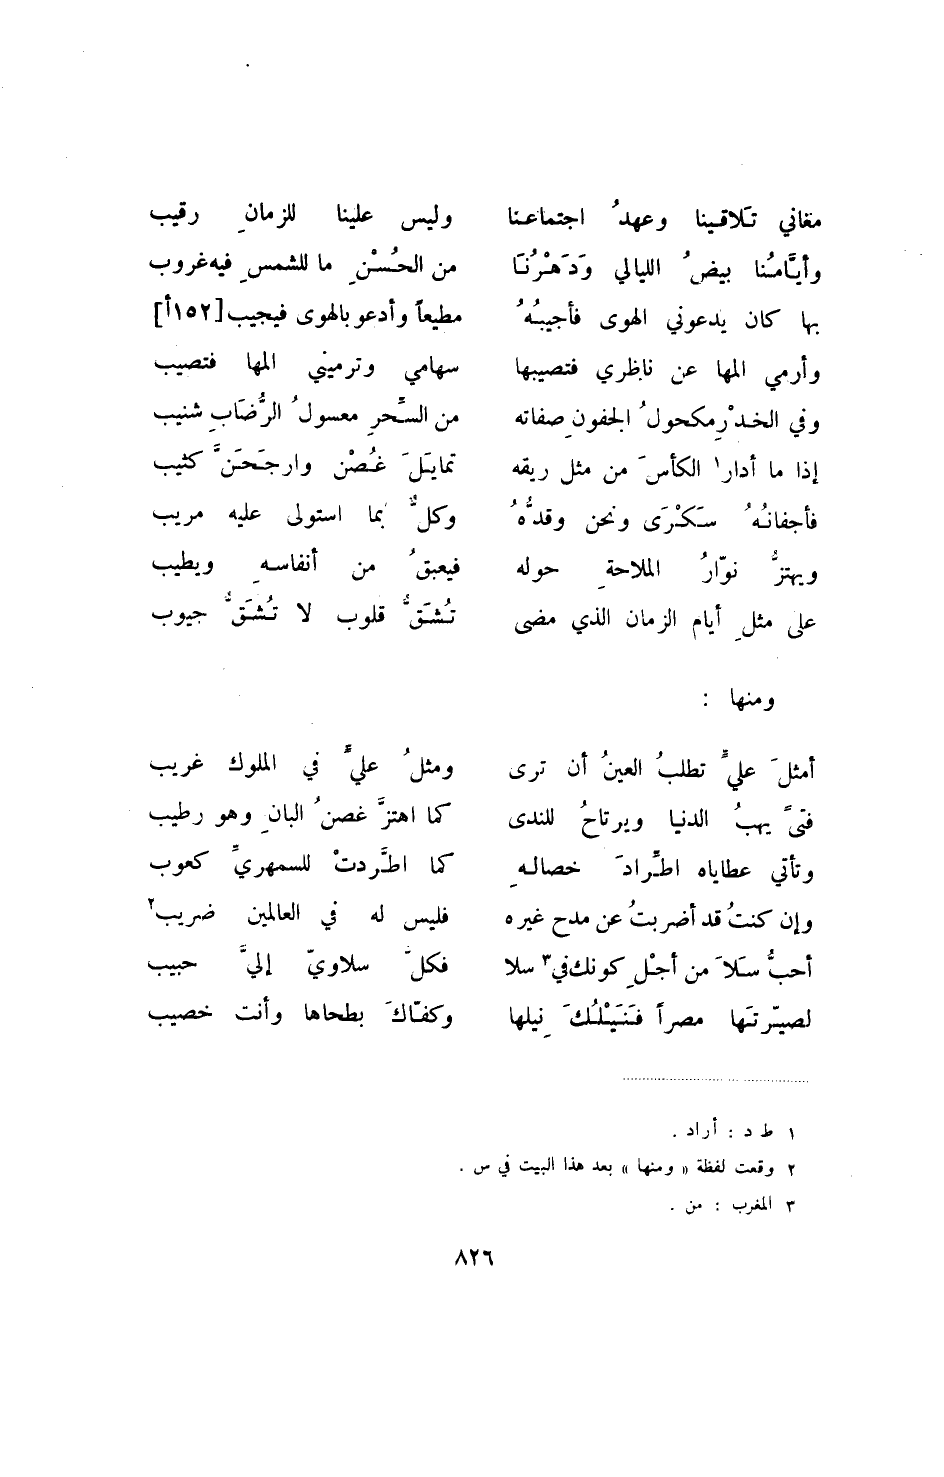 مغاني تَلاقـينا وعهدُ اجتماعنا وليس علينا للزمانِ رقيب
وأيّامُنا بيضُ الليالي وَدَهْرُنَا من الحُسْنِ ما للشمسِ فيه غروب
بها كان يدعوني الهوى فأجيبُهُ مطيعاً وأدعو بالهوى فيجيب [١٥٢أ]
وأرمي المها عن ناظري فتصيبها سهامي وترميني المها فتصيب
وفي الخدْرِ مكحولُ الجفونِ صفاته من السِّحرِ معسولُ الرُّضَابِ شنيب
إذا ما أدار١ الكأسَ من مثل ريقه تمايَلَ غُصْن وارجَحَنَّ كثيب
فأجفانُهُ سَكْرَى ونحن وقدُّهُ وكلٌّ بما استولى عليه مريب
ويهتزُّ نوّارُ الملاحةِ حوله فيعبقُ من أنفاسهِ ويطيب
على مثلِ أيام الزمان الذي مضى تُشَقُّ قلوب لا تُشَقُّ جيوب
ومنها :
أمثلَ عليٍّ تطلبُ العينُ أن ترى ومثلُ عليٍّ في الملوك غريب
فتىً يهبُ الدنيا ويرتاحُ للندى كما اهتزَّ غصنُ البانِ وهو رطيب
وتأتي عطاياه اطِّرادَ خصالهِ كما اطَّردتْ للسمهريِّ كعوب
وإن كنتُ قد أضربتُ عن مدح غيره فليس له في العالمين ضريب٢
أحبُّ سَلاَ من أجْلِ كونك في٣ سلا فكلّ سلاويّ إليَّ حبيب
لصيّرتَها مصراً فَنَيْلُكَ نِيلها وكفّاكَ بطحاها وأنت خصيب
١ ط د : أراد .
٢ وقعت لفظة « ومنها » بعد هذا البيت في س .
٣ المغرب : من .
٨٢٦